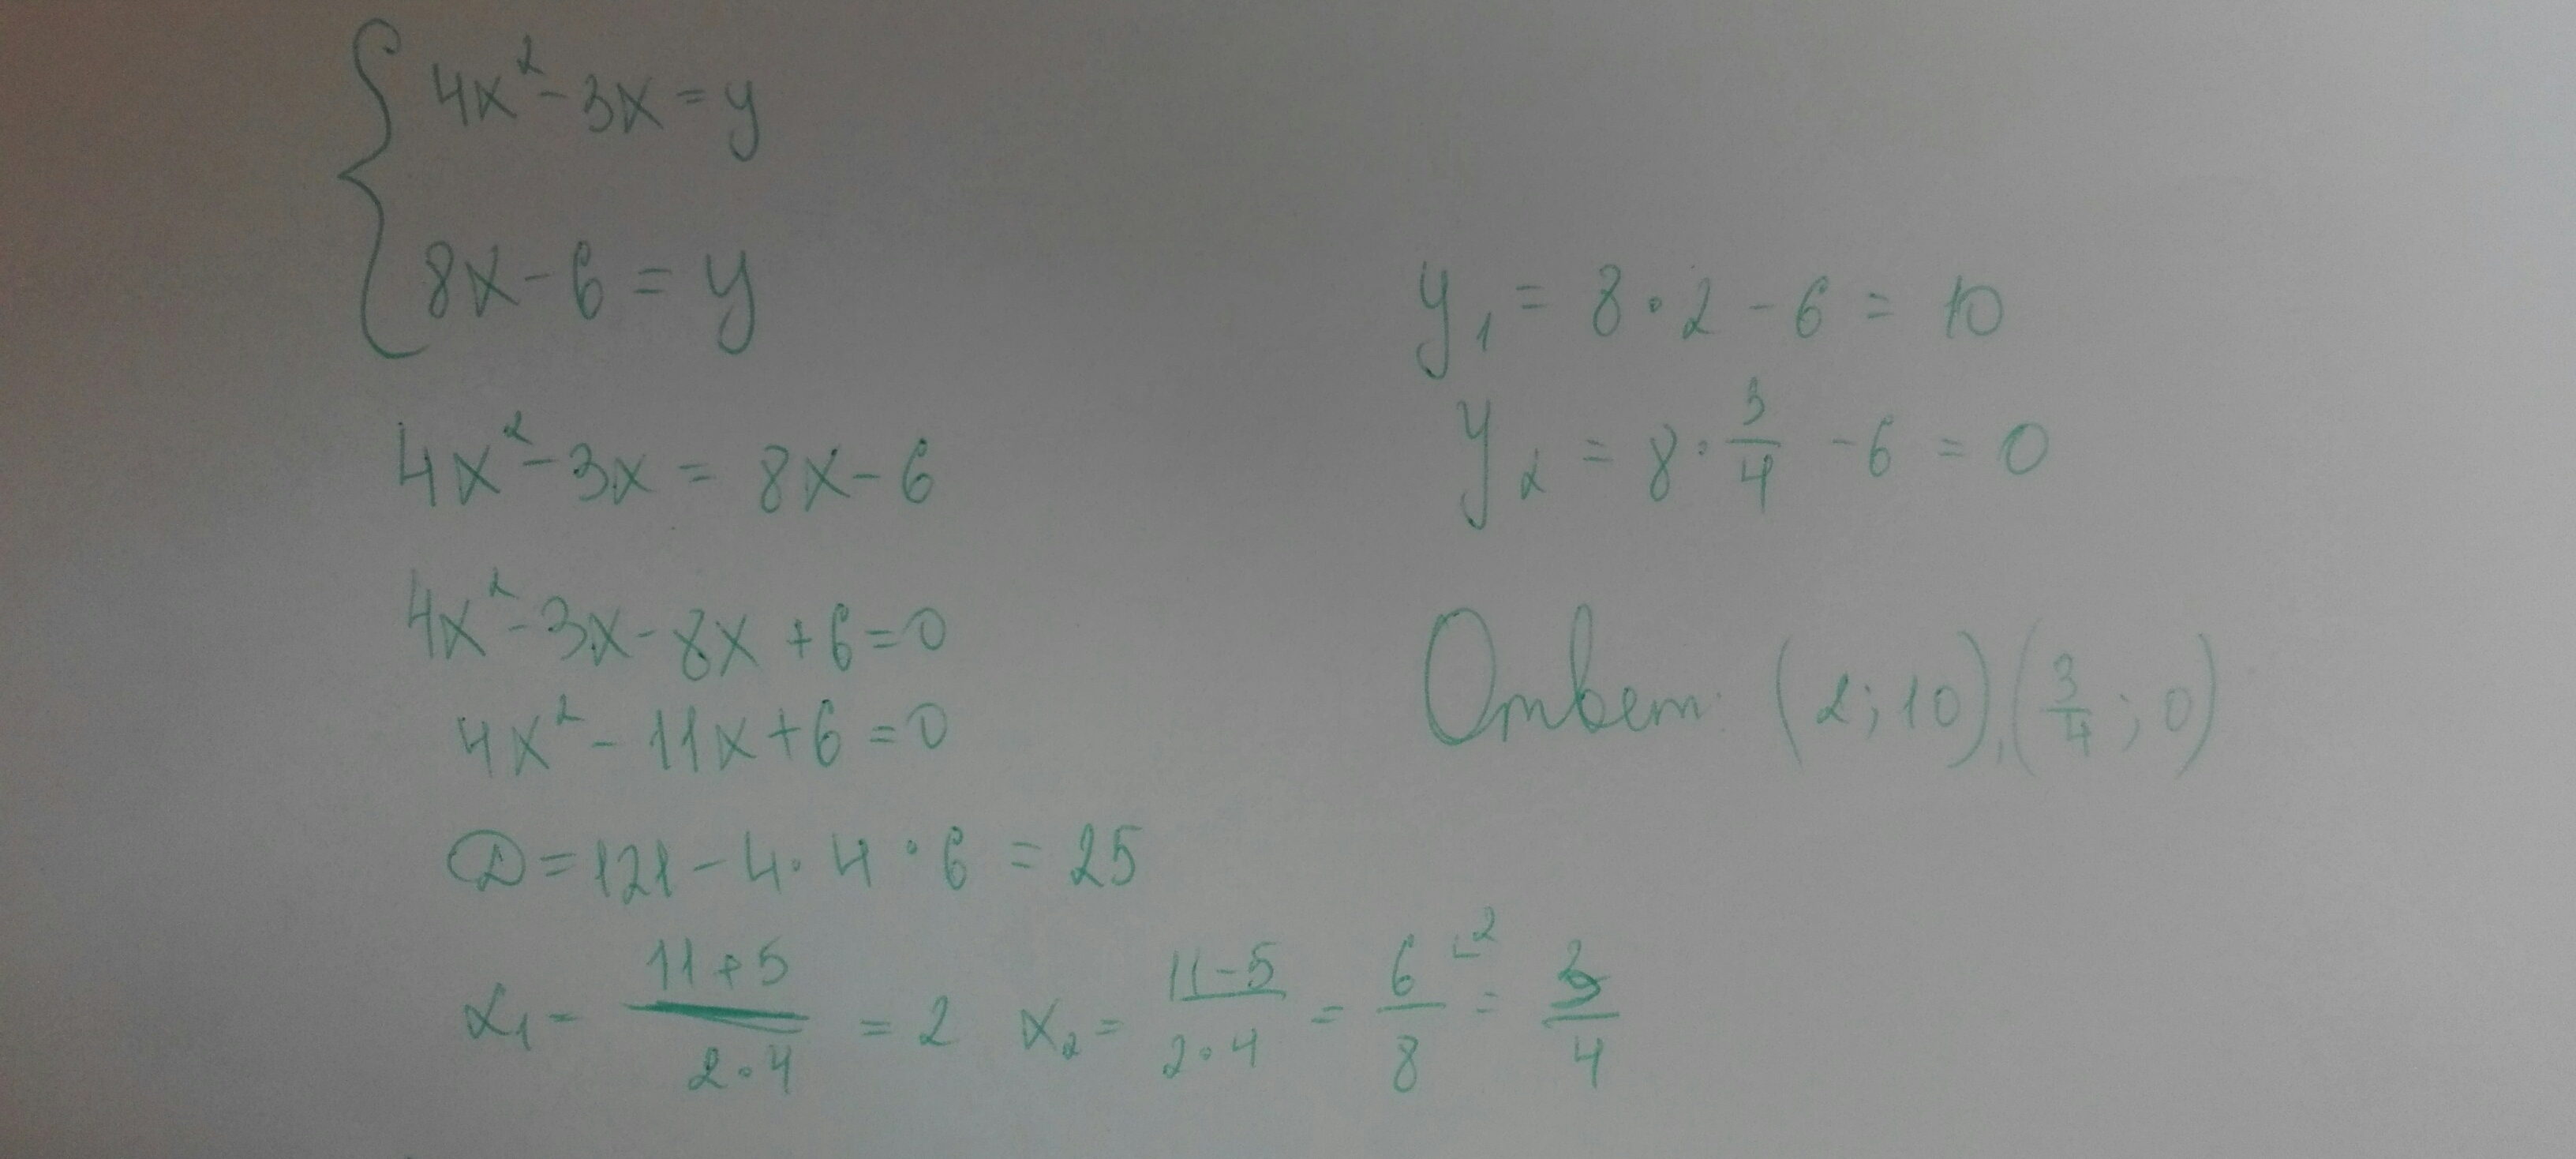 4x² - 3x = y
8x - 6 = y
4x² - 3x = 8x - 6
4x² - 3x - 8x + 6 = 0
4x² - 11x + 6 = 0
D = 121 - 4 · 4 · 6 = 25
x₁ = (11+5)/(2·4) = 2 x₂ = (11-5)/(2·4) = 6/8 ∟2 = 3/4
y₁ = 8 · 2 - 6 = 10
y₂ = 8 · 3/4 - 6 = 0
Ответ: (2; 10), (3/4; 0)